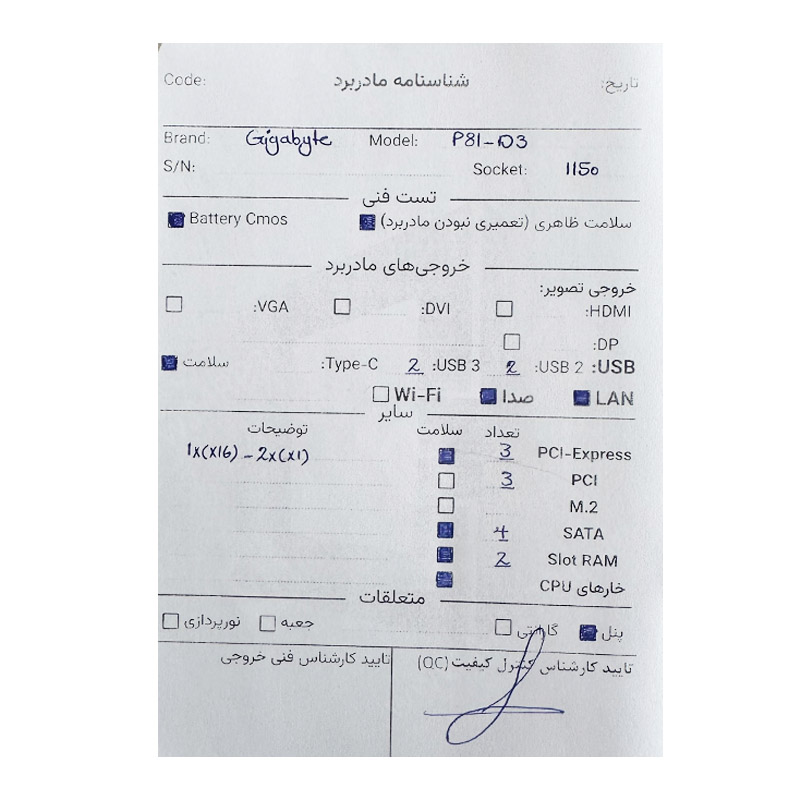 تاریخ: شناسنامه مادربرد Code:
Brand: Gigabyte Model: P81-D3
S/N: Socket: 1150
تست فنی
سلامت ظاهری (تعمیری نبودن مادربرد) Battery Cmos
خروجی‌های مادربرد
خروجی تصویر:
HDMI: DVI: VGA:
DP:
USB: USB 2: 2 USB 3: 2 Type-C: سلامت
LAN صدا Wi-Fi
سایر
تعداد سلامت توضیحات
PCI-Express 3 1x(x16) - 2x(x1)
PCI 3
M.2
SATA 4
Slot RAM 2
خارهای CPU
متعلقات
پنل گارانتی جعبه نورپردازی
تایید کارشناس کنترل کیفیت (QC) تایید کارشناس فنی خروجی